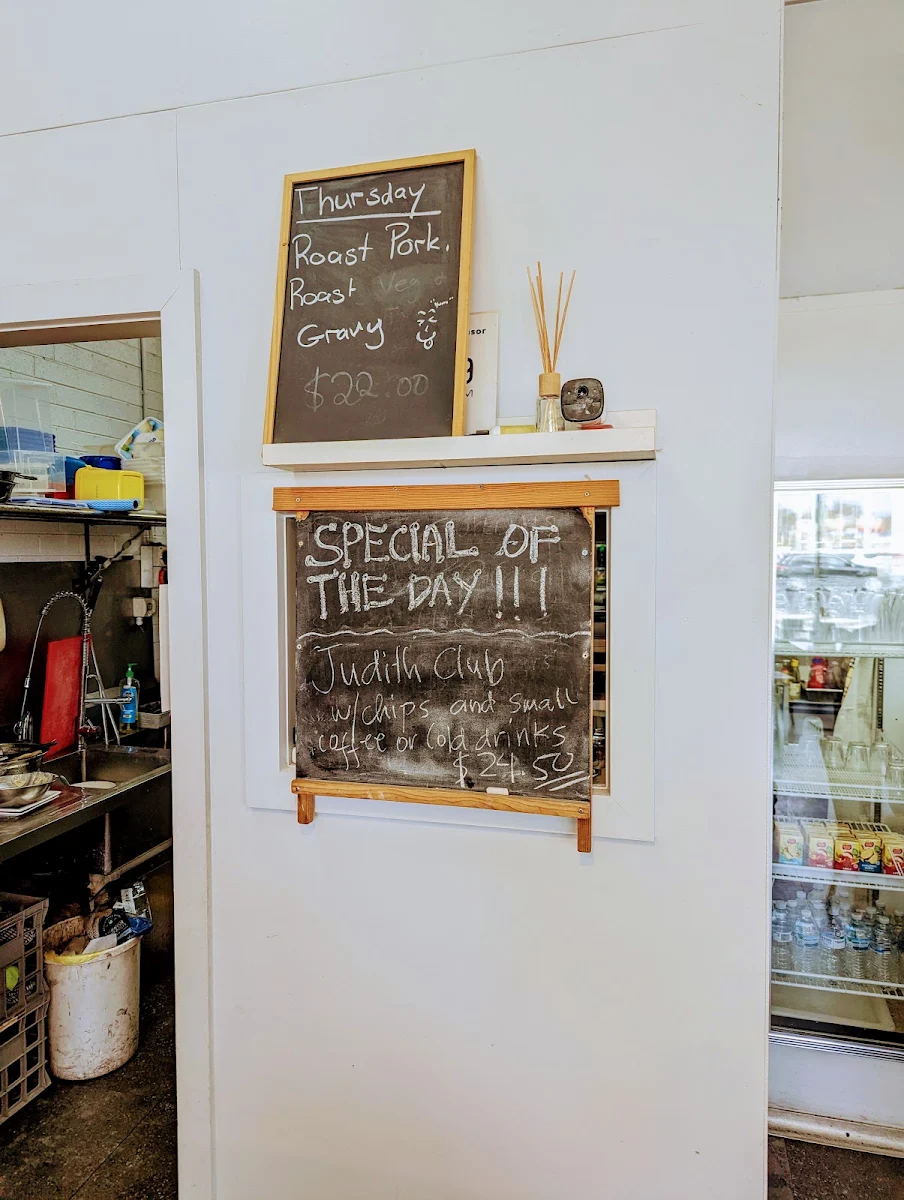 Thursday
Roast Pork.
Roast Veg &
Gravy
$22.00
SPECIAL OF
THE DAY !!!
Judith Club
w/chips and small
coffee or Cold drinks
$24.50